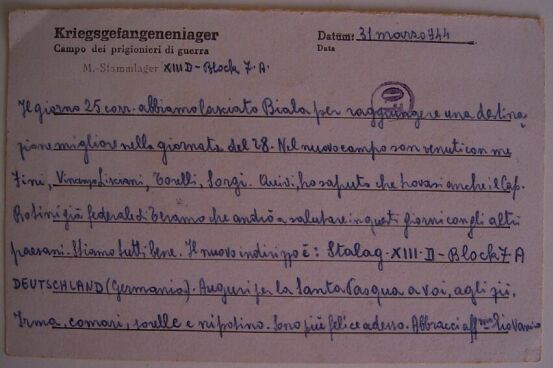 Kriegsgefangenenlager Datum: 31 marzo 944
Campo dei prigionieri di guerra Data
M.-Stammlager XIII D - Block 7 A.
Il giorno 25 corr. abbiamo lasciato Biala per raggiungere una destina,
zione migliore nella giornata del 28. Nel nuovo campo son venuti con me
Fini, Vincenzo Lisciani, Torelli, Sorgi. Quivi, ho saputo che trovasi anche il Cap.
Rotini già federale di Teramo che andrò a salutare in questi giorni con gli altri
paesani. Stiamo tutti bene. Il nuovo indirizzo è: Stalag - XIII - D - Block 7 A
DEUTSCHLAND (Germania). Auguri per la Santa Pasqua a voi, agli zii,
Irma, comari, sorelle e nipotino. Sono più felice adesso. Abbracci aff.mo